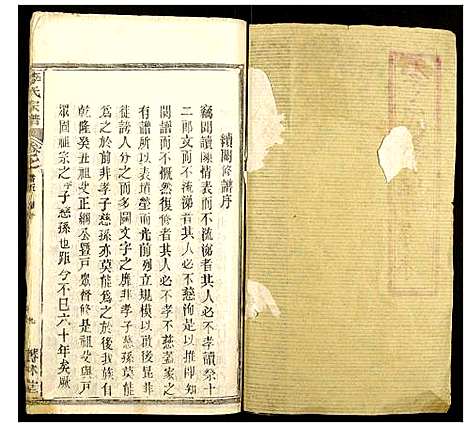 續闔修譜序
竊聞讀陳情表而不流涕者其人必不孝讀祭十
二郎文而不流涕者其人必不慈洵是以推即知
閱譜而不慨然復修者其人必不孝不慈蓋家之
有譜所以表墳塋而光前列立規模以啟後昆非
徒誇人分之而多闕文字之靡非孝子慈孫莫能
為之於前非孝子慈孫亦莫能為之於後我自有
乾隆癸丑祖父正綱公暨戶眾督修是祖父與戶
眾固祖宗之孝子慈孫也距今不已六十年矣厥
李氏家譜